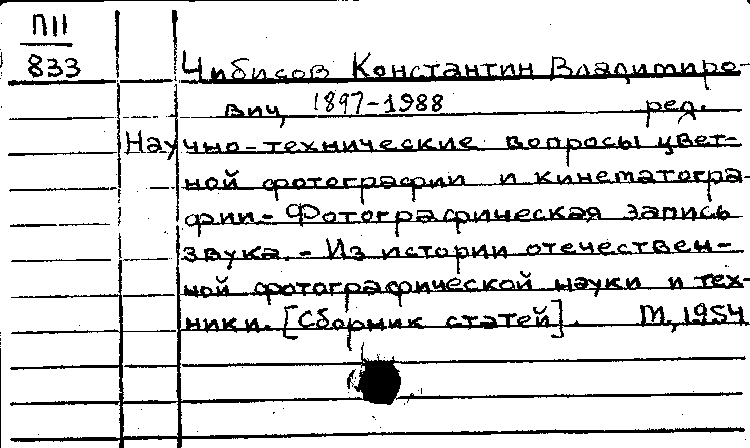 П11
833
Чибисов Константин Владимиро-
вич, 1897-1988 ред.
Научно-технические вопросы цвет-
ной фотографии и кинематогра-
фии.- Фотографическая запись
звука.- Из истории отечествен-
ной фотографической науки и тех-
ники. [Сборник статей]. М., 1954